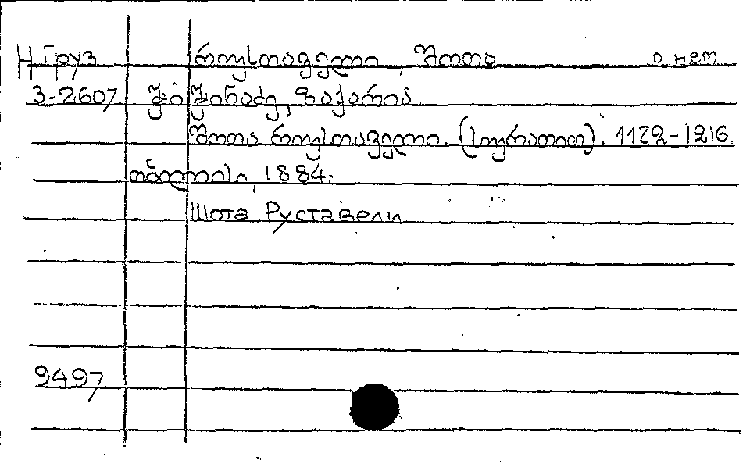 Н Груз რუსთაველი, შოთა о нем
3-2607 ში შიჩინაძე, ზაქარია
შოთა რუსთაველი. (სურათით). 1172-1216.
თბილისი, 1884.
Шота Руставели
9497